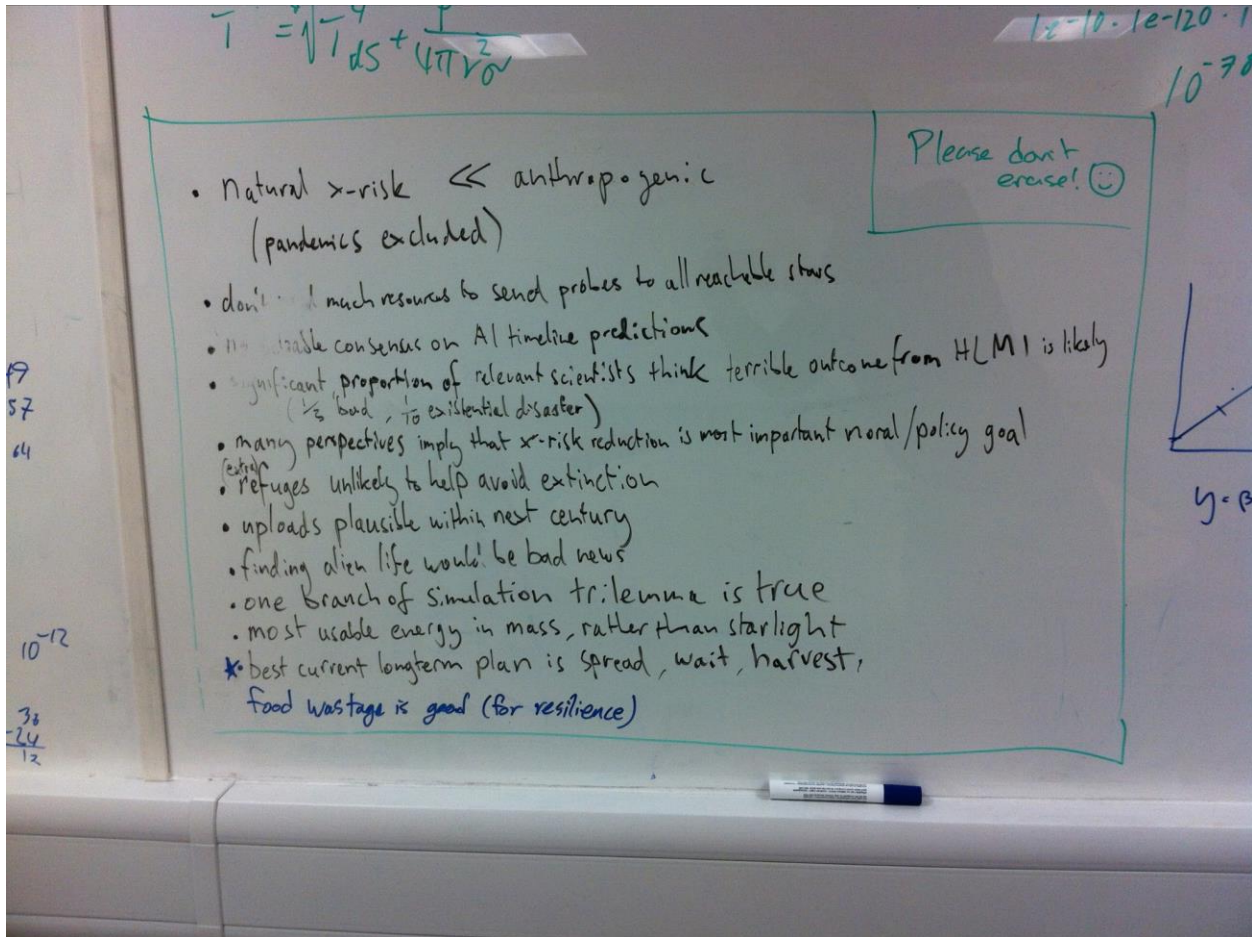 1e-10 · 1e-120 · 1
Please don't
erase! ☺
• Natural x-risk << anthropogenic
(pandemics excluded)
• don't much resources to send probes to all reachable stars
• consensus on AI timeline predictions
• significant proportion of relevant scientists think terrible outcome from HLMI is likely
(1/3 bad, 1/10 existential disaster)
• many perspectives imply that x-risk reduction is most important moral/policy goal
(extra)
• refuges unlikely to help avoid extinction
• uploads plausible within next century
• finding alien life would be bad news
• one branch of simulation trilemma is true
• most usable energy in mass, rather than starlight
* • best current longterm plan is spread, wait, harvest,
food wastage is good (for resilience)
57
64
10^-12
36
-24
12